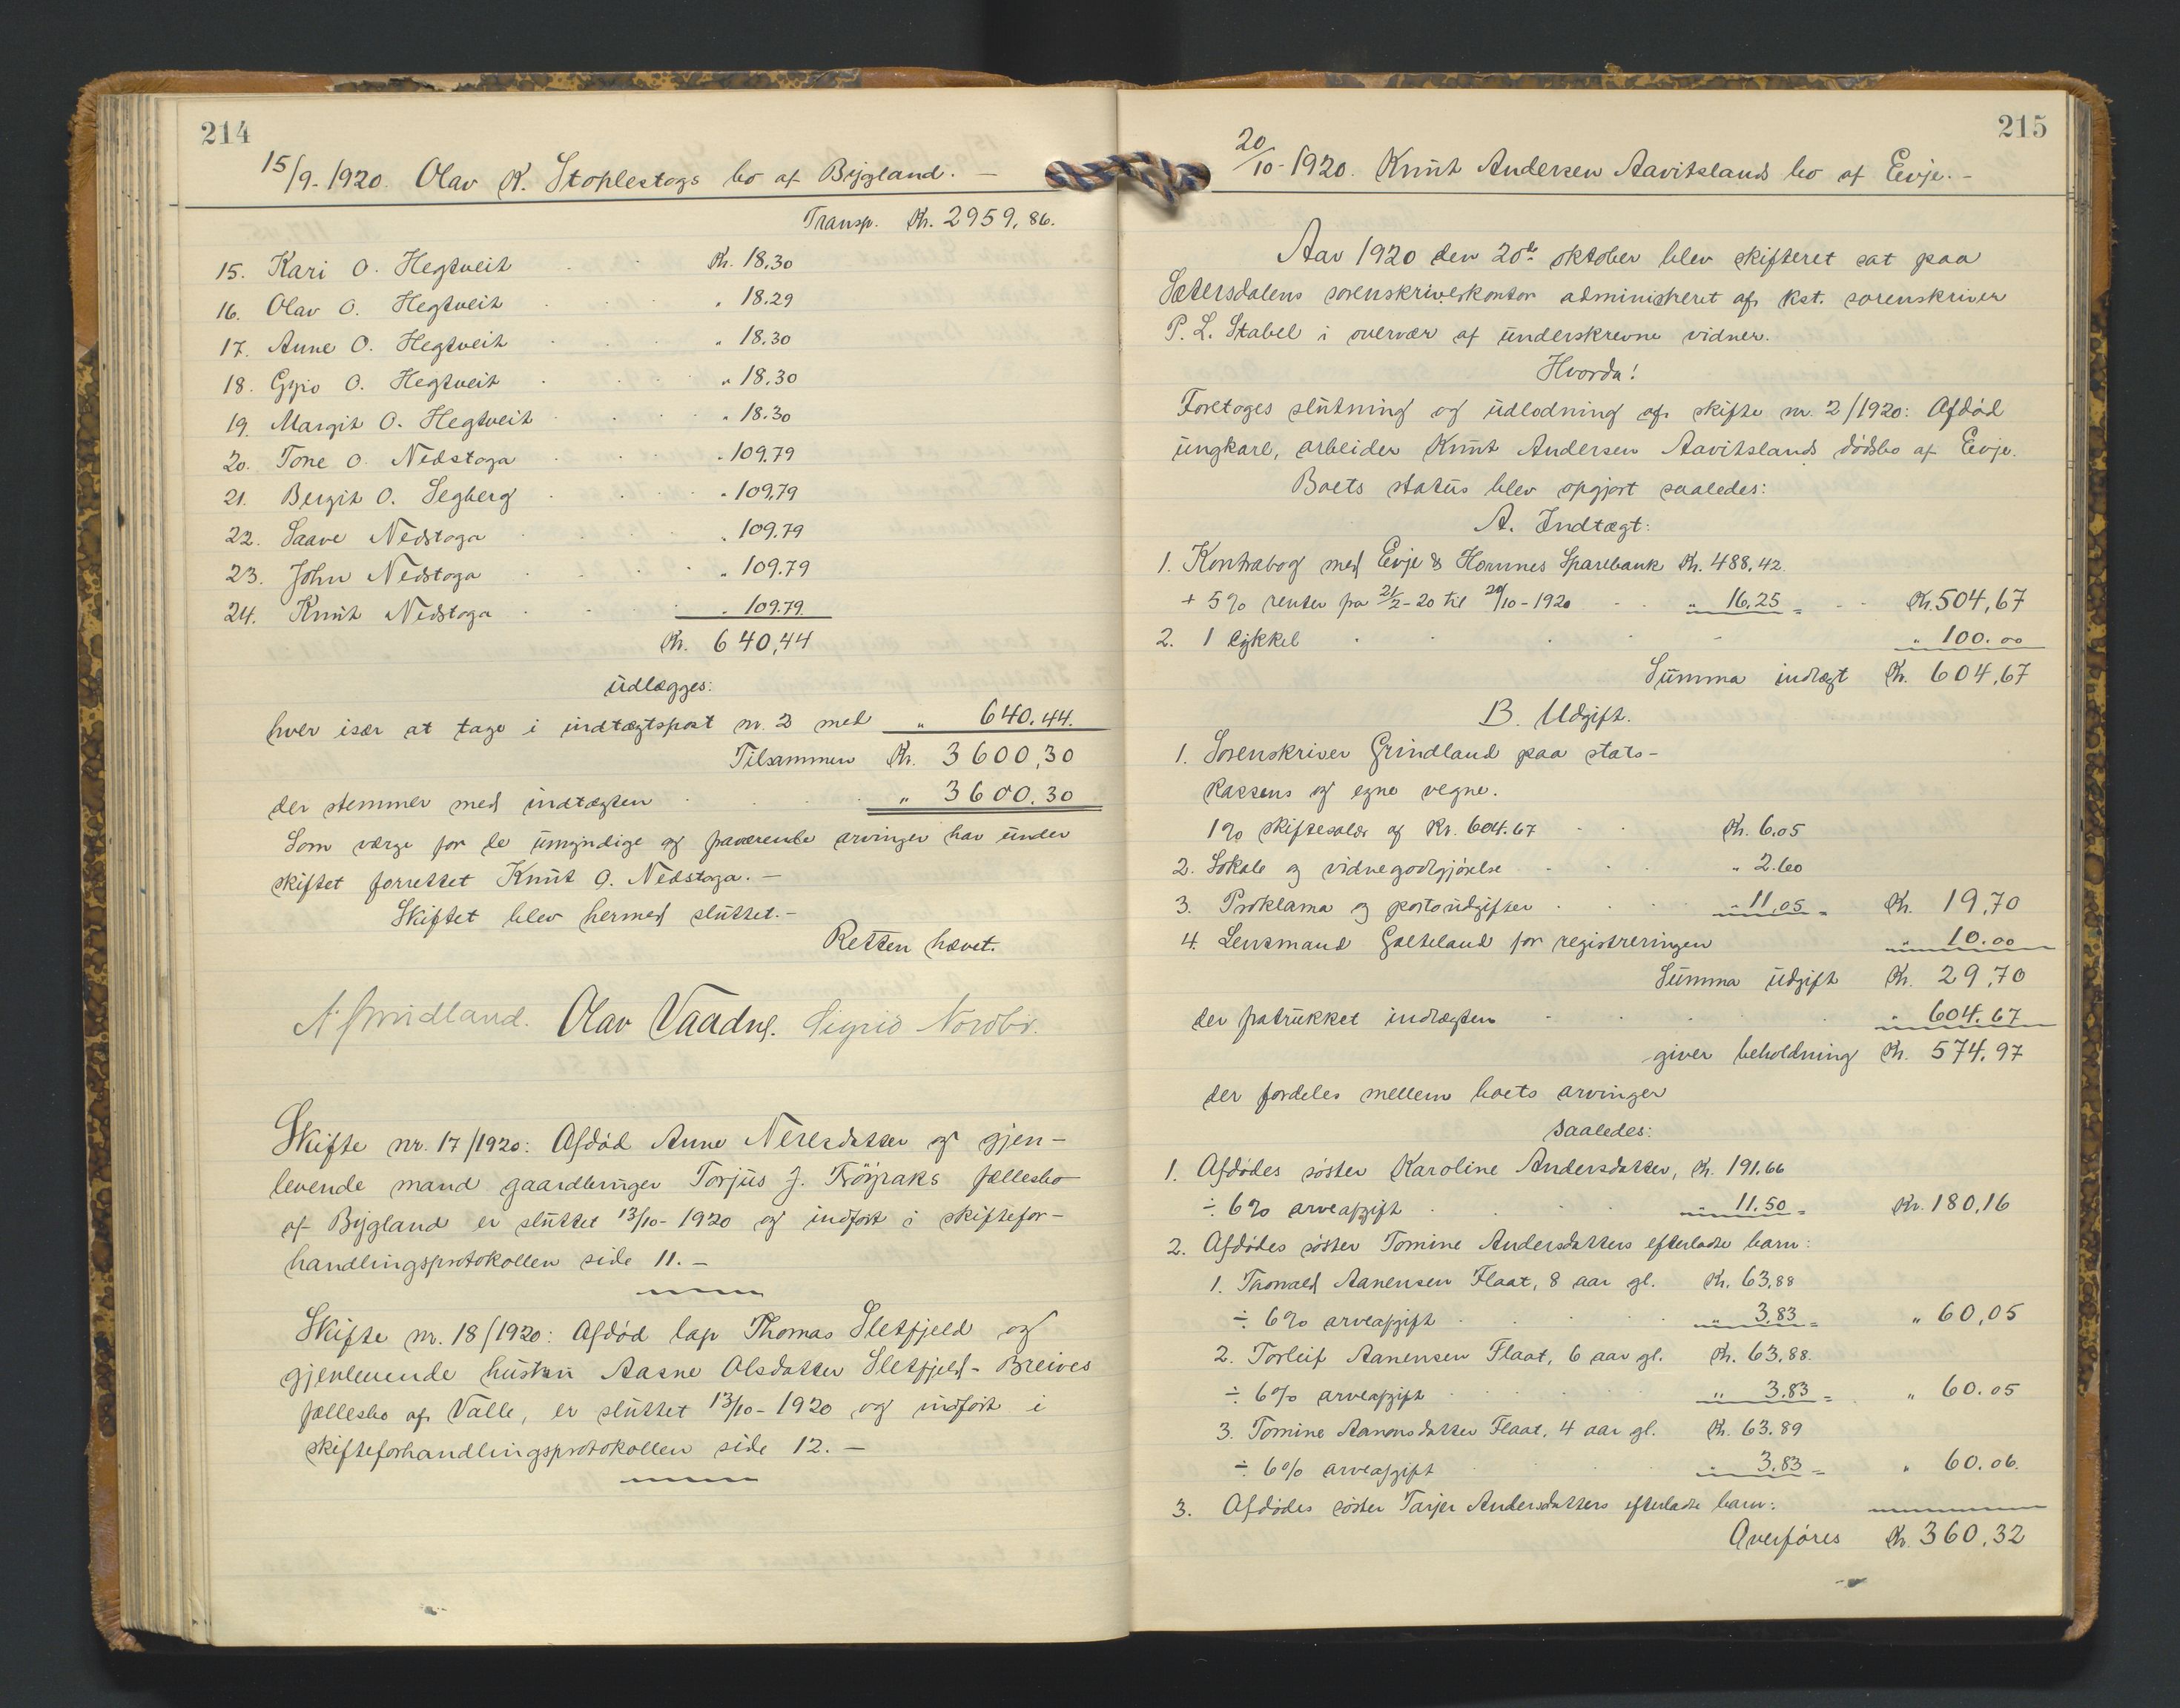 214
15/9-1920. Olav K. Stoplestogs bo af Bygland. –
Transp. Kr. 2959,86.
15. Kari O. Hegtveit . . Kr. 18.30
16. Olav O. Hegtveit . . . " 18.29
17. Anne O. Hegtveit . . . " 18.30
18. Gyro O. Hegtveit . . . " 18.30
19. Margit O. Hegtveit . . . " 18.30
20. Tone O. Nedstoga . . . " 109.79
21. Bergit O. Segberg . . . " 109.79
22. Saave Nedstoga . . . " 109.79
23. John Nedstoga . . . " 109.79
24. Knut Nedstoga . . . " 109.79
Kr. 640,44
udlægges:
hver især at tage i indtægtspost nr. 2 med " 640.44.
Tilsammen Kr. 3600,30
der stemmer med indtægten . . . " 3600.30
Som værge for de umyndige og fraværende arvinger har under
skiftet forrettet Knut O. Nedstoga. –
Skiftet blev hermed sluttet. –
Retten hævet.
N. Grindland. Olav Vaadne. Sigrid Nordbø.
Skifte nr. 17/1920: Afdød Anne Neresdatter og gjen-
levende mand gaardbruger Torjus J. Frøyraks fællesbo
af Bygland er sluttet 13/10-1920 og indført i skiftefor-
handlingsprotokollen side 11. –
Skifte nr. 18/1920: Afdød lap Thomas Sletfjeld og
gjenlevende hustru Aasne Olsdatter Sletfjeld-Breives
fællesbo af Valle, er sluttet 13/10-1920 og indført i
skifteforhandlingsprotokollen side 12. –
215
20/10-1920. Knut Andersen Aavitslands bo af Evje. –
Aar 1920 den 20de oktober blev skifteret sat paa
Sætersdalens sorenskriverkontor administreret af kst. sorenskriver
P. L. Stabel i overvær af underskrevne vidner.
Hvorda!
Foretoges slutning og udlodning af skifte nr. 2/1920: Afdød
ungkarl, arbeider Knut Andersen Aavitslands dødsbo af Evje.
Boets status blev opgjort saaledes:
A. Indtægt:
1. Kontrabog med Evje & Hornnes Sparebank Kr. 488,42.
+ 5% renter fra 21/2-20 til 20/10-1920 . . " 16,25 = . . Kr. 504,67
2. 1 cykkel . . . . " 100.00
Summa indtægt Kr. 604,67
B. Udgift.
1. Sorenskriver Grindland paa stats-
kassens og egne vegne.
1% skiftesalær af Kr. 604.67 . . Kr. 6.05
2. Lokale og vidnegodtgjørelse . . . " 2.60
3. Proklama og portoudgifter . . . " 11,05 = Kr. 19,70
4. Lensmand Galteland for registreringen " 10.00
Summa udgift Kr. 29,70
der fratrukket indtægten . . . . " 604.67
giver beholdning Kr. 574.97
der fordeles mellem boets arvinger
saaledes:
1. Afdødes søster Karoline Andersdatter, Kr. 191.66
÷ 6% arveafgift . . . " 11.50 = Kr. 180,16
2. Afdødes søster Tomine Andersdatters efterladte barn:
1. Thorvald Aanensen Flaat, 8 aar gl. Kr. 63,88
÷ 6% arveafgift . . . . " 3.83 = " 60,05
2. Torleif Aanensen Flaat, 6 aar gl. Kr. 63.88.
÷ 6% arveafgift . . . . " 3.83 = . " 60.05
3. Tomine Aanonsdatter Flaat, 4 aar gl. Kr. 63.89
÷ 6% arveafgift . . . . " 3.83 = " 60.06.
3. Afdødes søster Tarjer Andersdatters efterladte barn:
Overføres Kr. 360,32